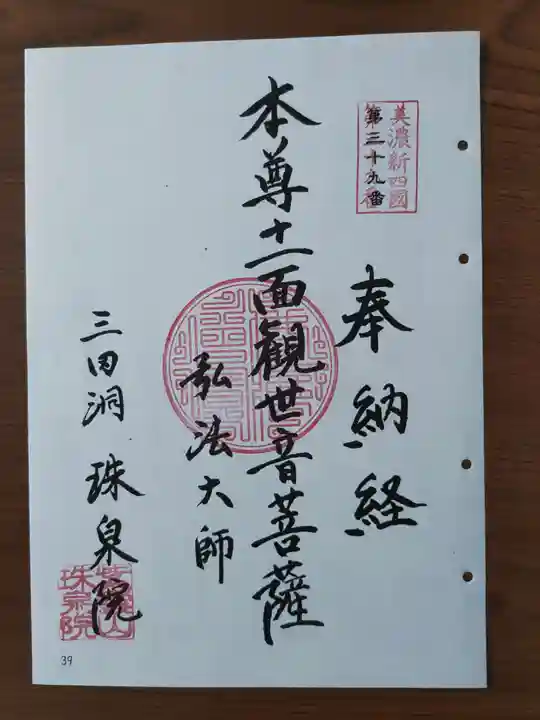 美濃新四国
第三十九番
奉納経
本尊十一面観世音菩薩
弘法大師
三田洞 珠泉院
39